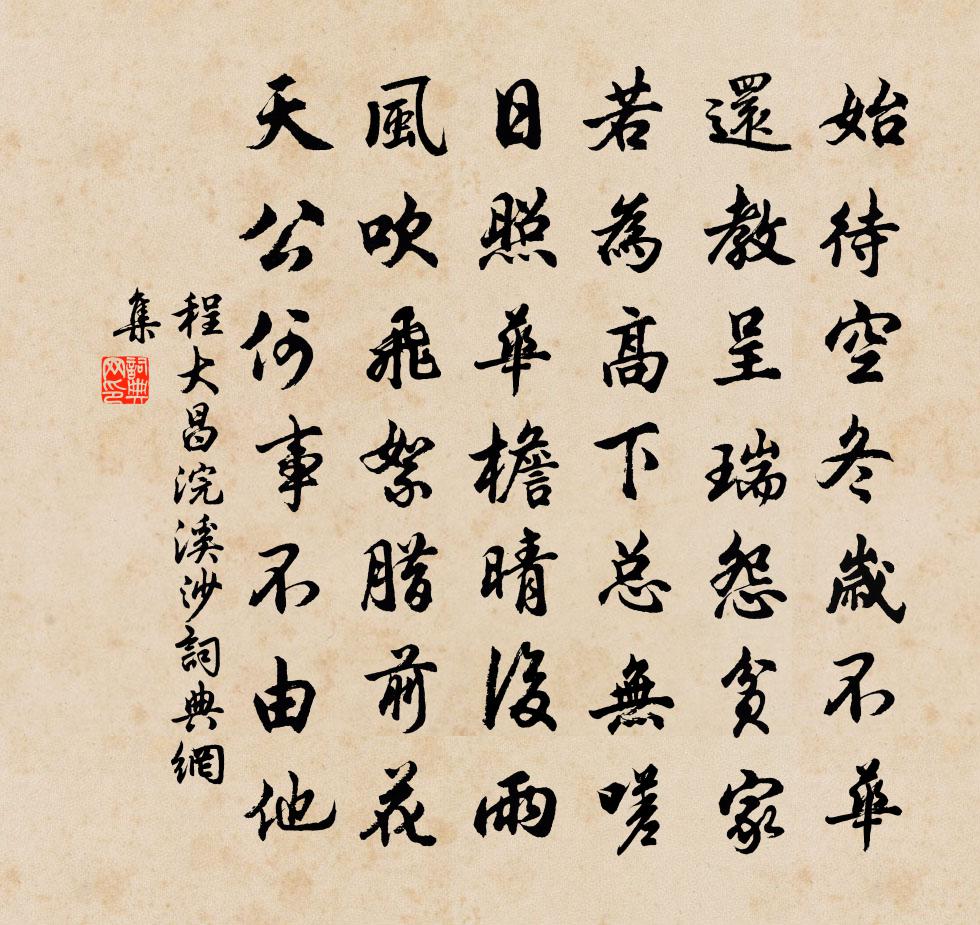 始待空冬歲不華
還教呈瑞怨貧家
若為高下總無嗟
日照華檐晴後雨
風吹飛絮腊前花
天公何事不由他
程大昌浣溪沙詞典網
集
詞典網印